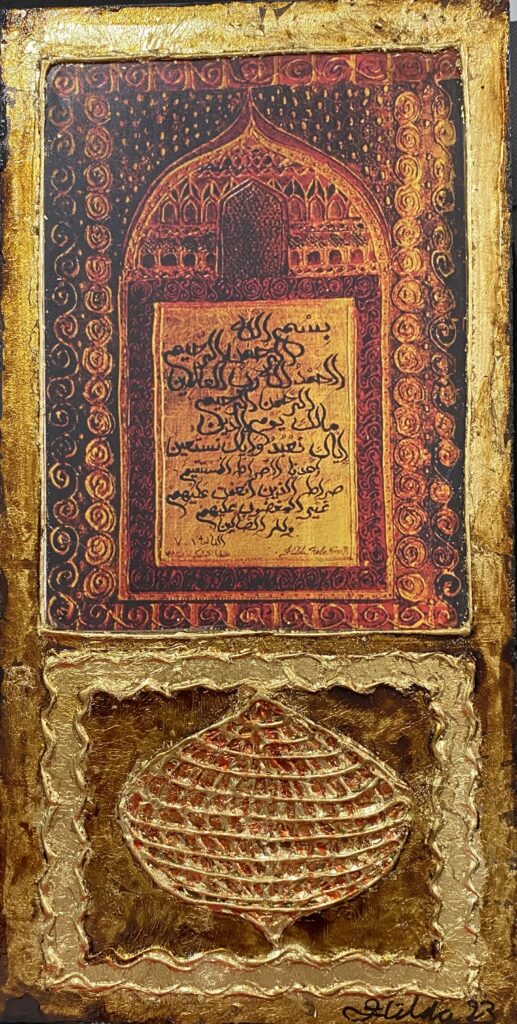 بسم الله
الرحمن الرحيم
الحمد لله رب العالمين
الرحمن الرحيم
مالك يوم الدين
إياك نَعْبُدُ وإياك نستعين
اهدنا الصراط المستقيم
صراط الذين انعمت عليهم
غير المغضوب عليهم
ولا الضالين
Hilda 23